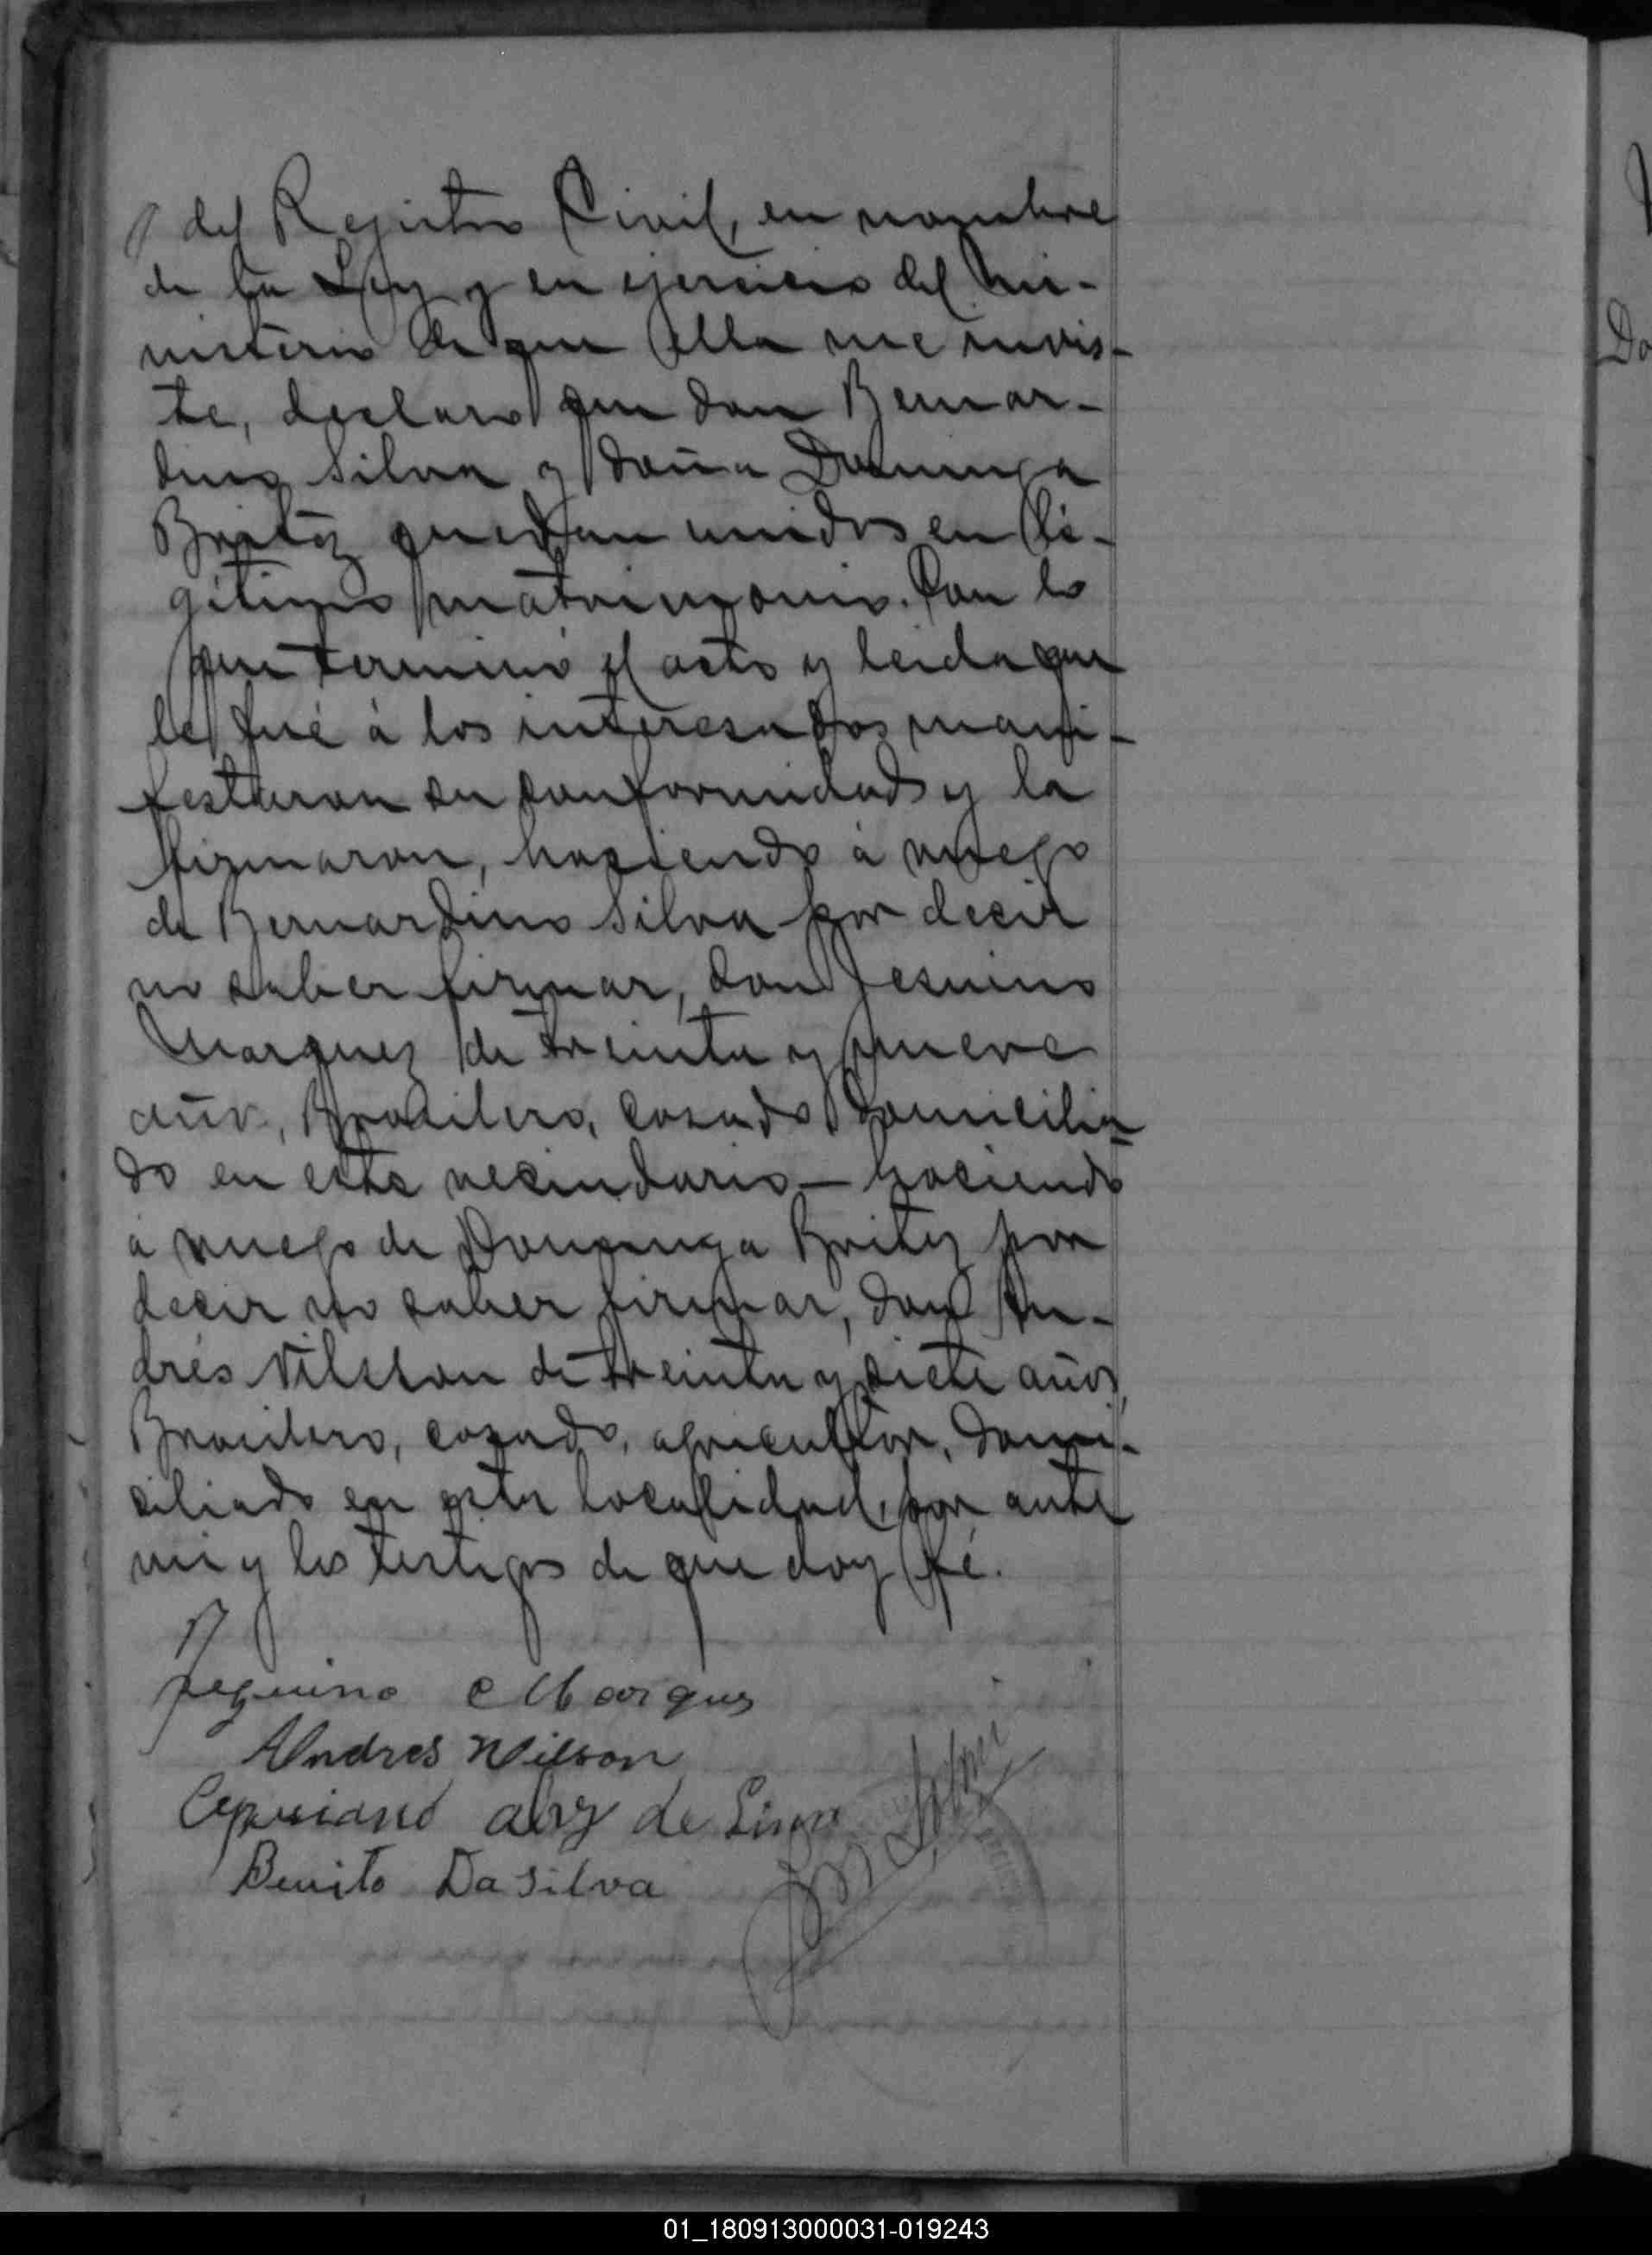 del Registro Civil, en nombre
de la Ley y en ejercicio del mi-
nisterio de que ella me invis-
te, declaro que don Bernar-
dino Silva y doña Dominga
Britez quedan unidos en lé-
gitimo matrimonio. Con lo
que terminó el acto y leida que
le fué á los interesados mani-
festaron su conformidad y la
firmaron, haciendo á ruego
de Bernardino Silva por decir
no saber firmar, don Jesuino
Marquez de treinta y nueve
años, Brasilero, casado domicilia
do en este vecindario - haciendo
á ruego de Dominga Britez por
decir no saber firmar, don An-
drés Nilsson de treinta y siete años,
Brasilero, casado, agricultor, domi-
ciliado en esta localidad, por ante
mi y los testigos de que doy fé.
Jezuino Marques
Andres Nilson
Cepriano alvz de Lima
Benito Da Silva
01_180913000031-019243